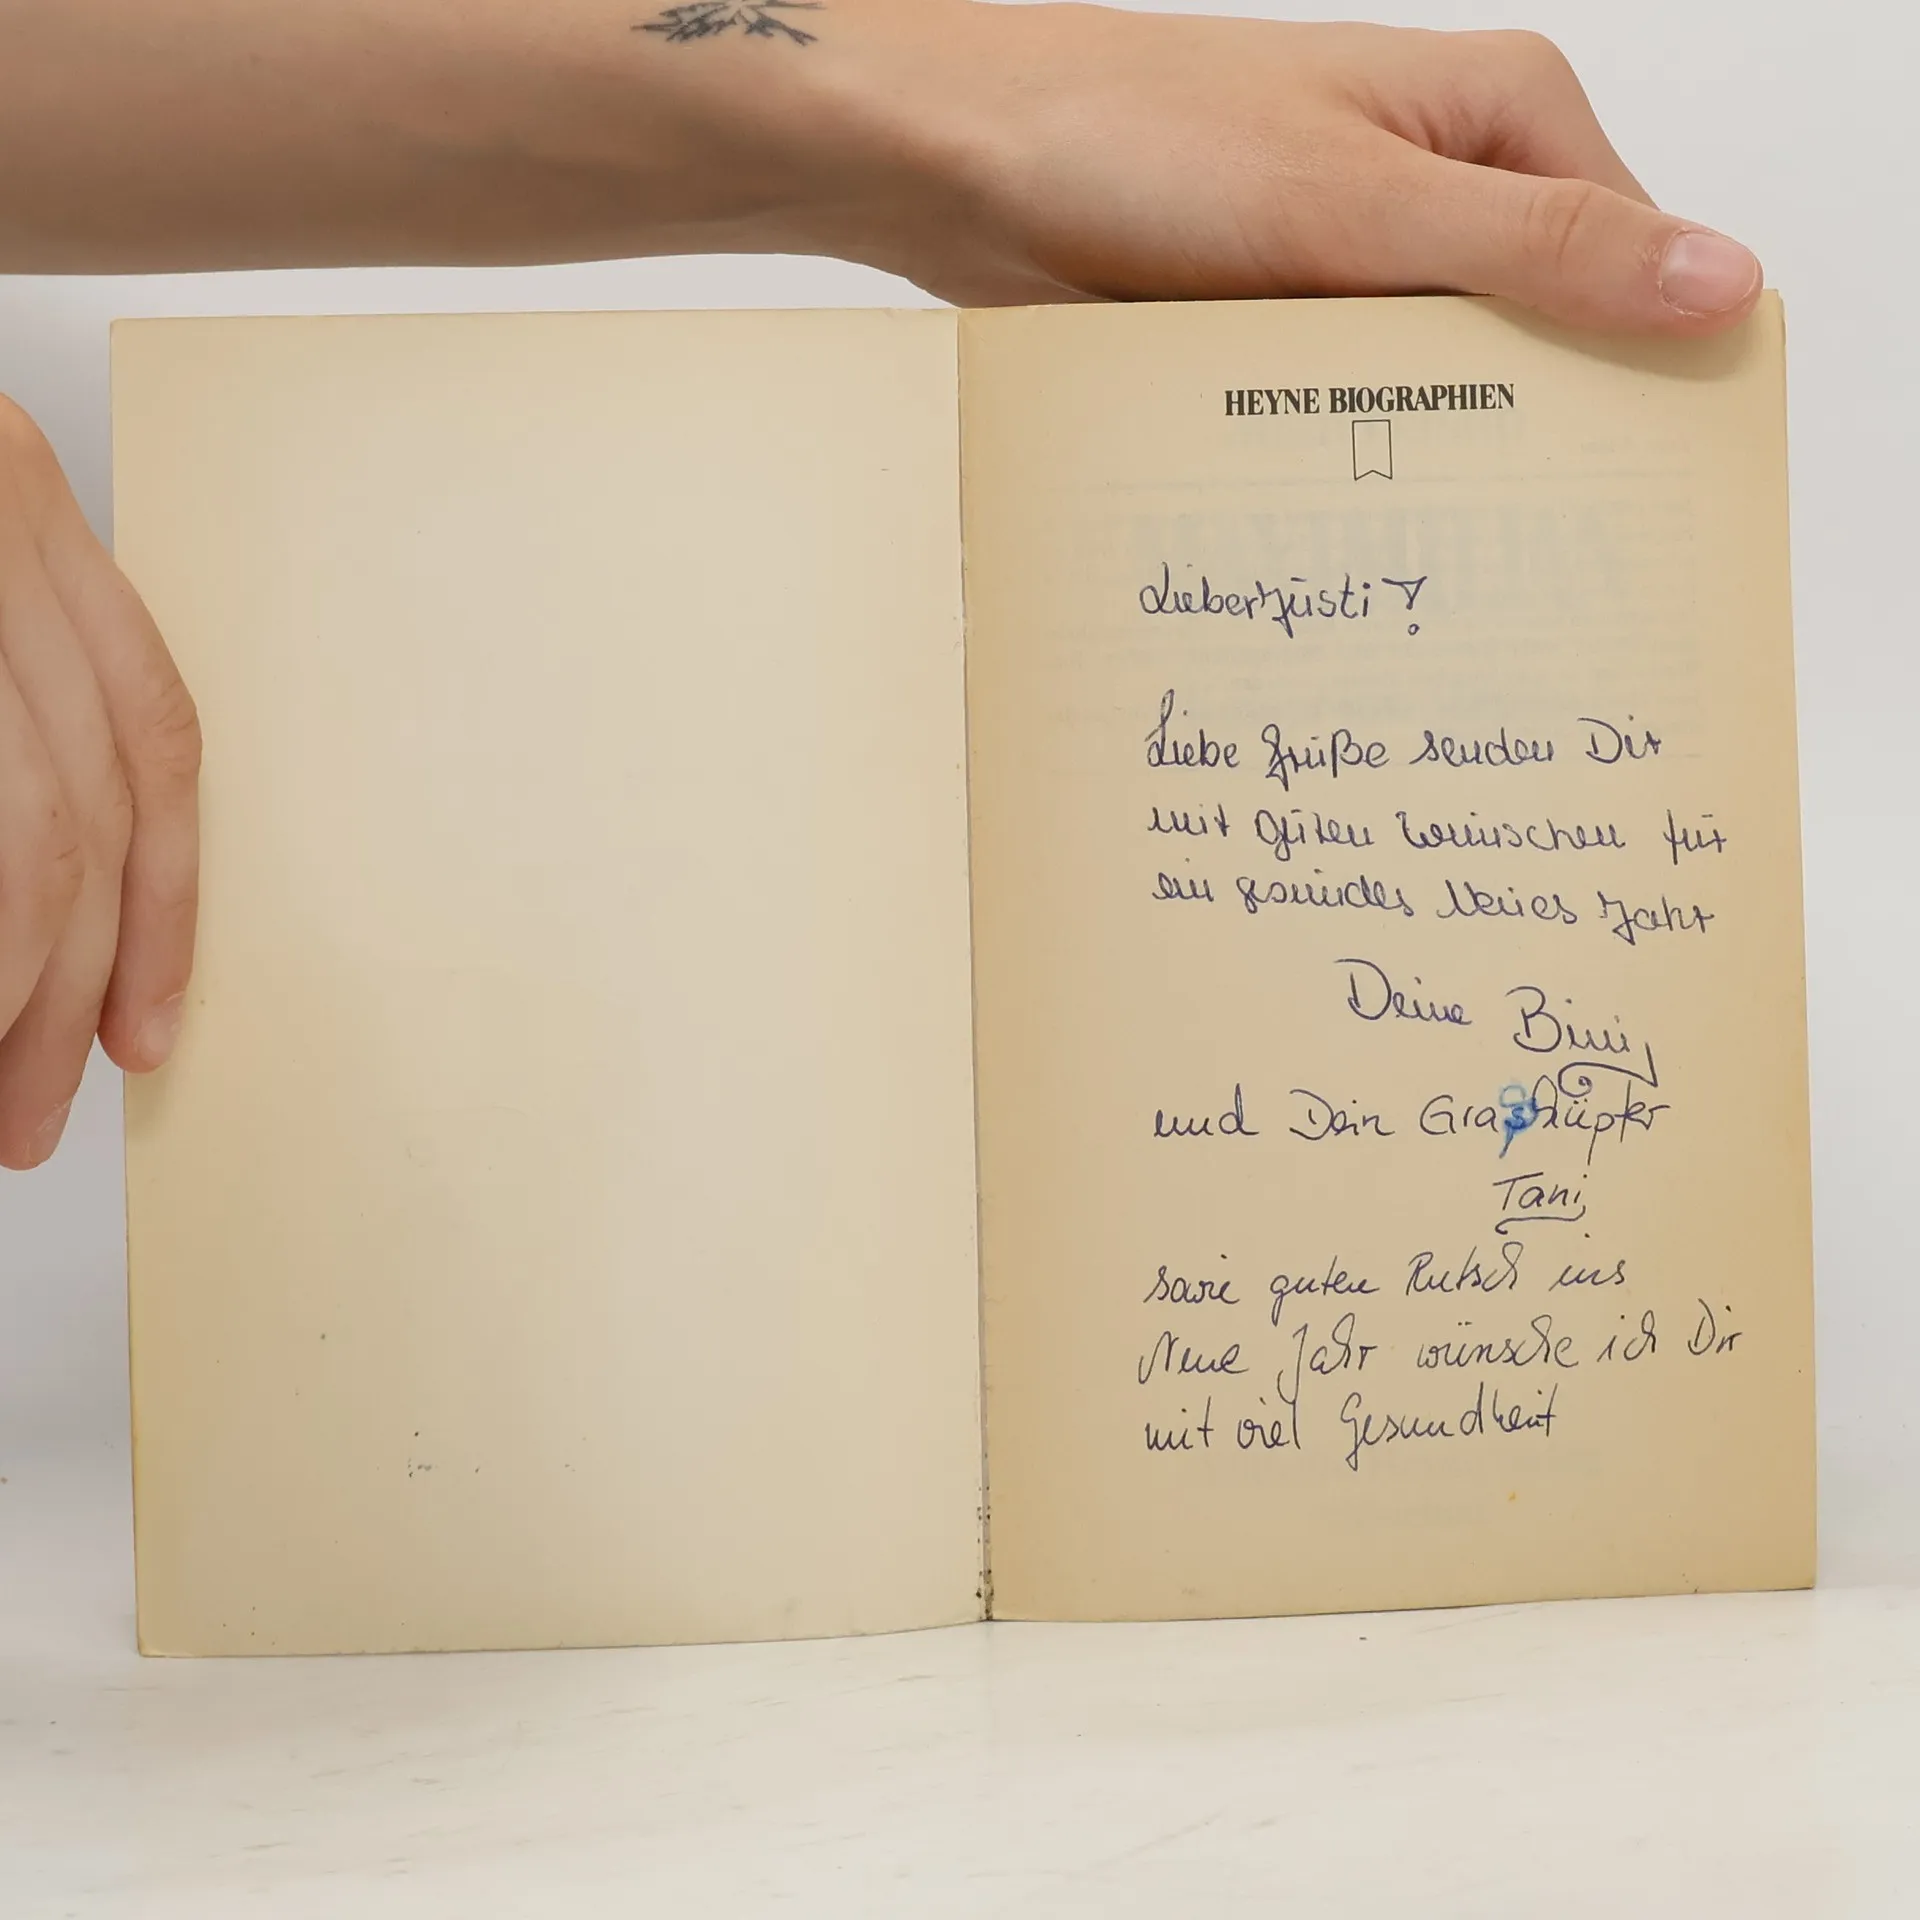 HEYNE BIOGRAPHIEN
Lieber Justi!
Liebe Grüße senden Dir
mit guten Wünschen für
ein gesundes Neues Jahr
Deine Bini
und Dein Grashüpfer
Tani
sowie guten Rutsch ins
Neue Jahr wünsche ich Dir
mit viel Gesundheit